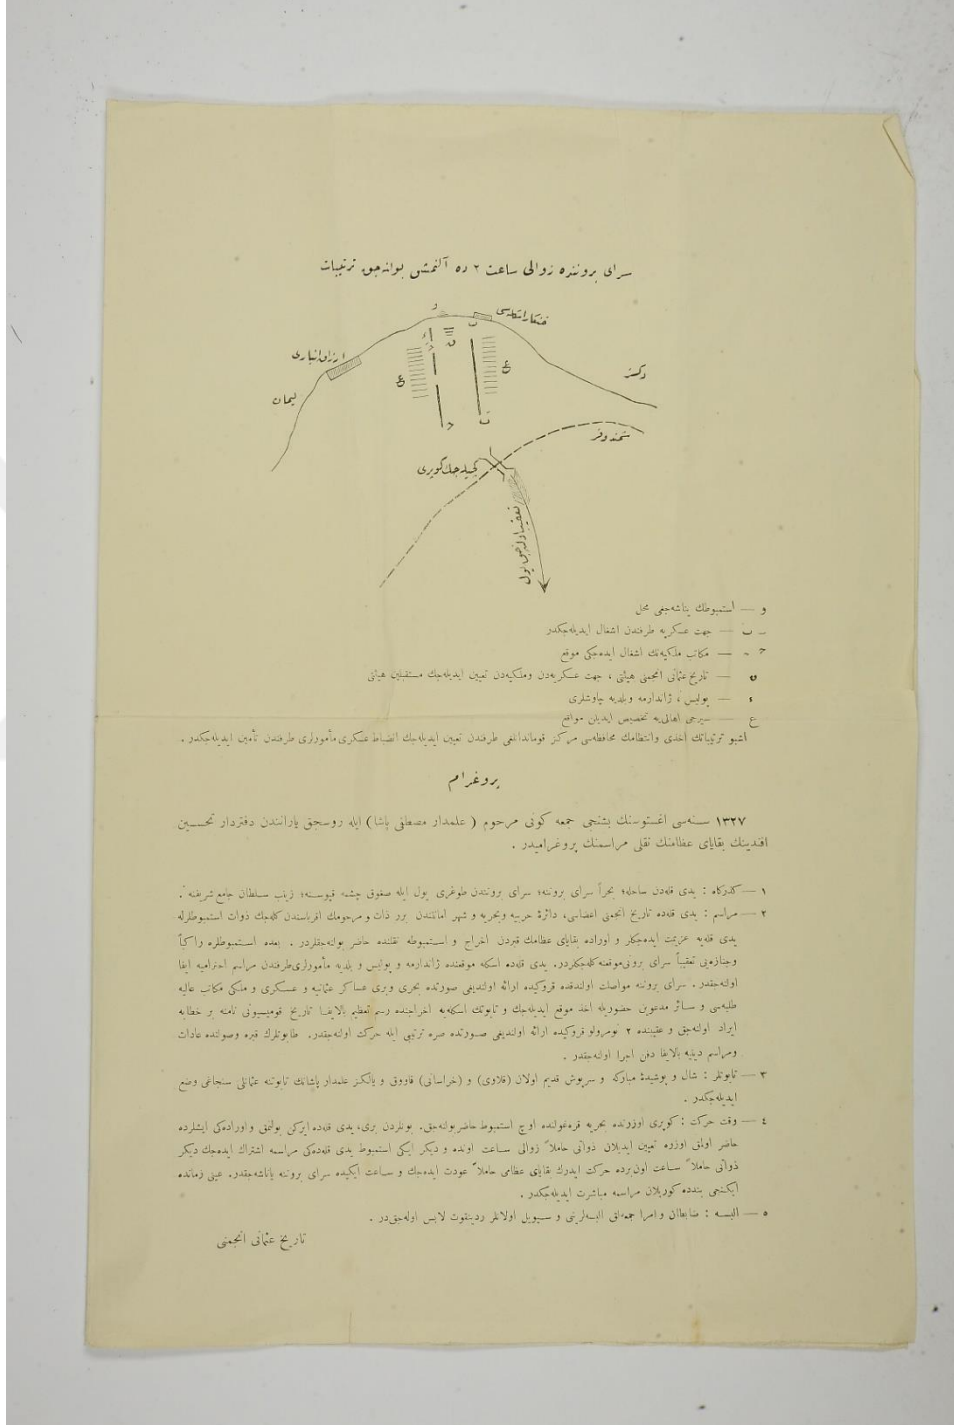 سرای بروننده زوالی ساعت ٢ ده آلنمش بولنه‌جق ترتیبات
و
خنكار اسكله‌سی
ارزاق انباری
لیمان
دكز
شمندوفر
ب
ع
ع
ن
ء
ح
ح
ب
كچیله‌جك كوپری
تعقیب اولنه‌جق یول
و — استمبوطك یناشه‌جغی محل
ب — جهت عسكریه طرفندن اشغال ایدیله‌جكدر
ح — مكاتب ملكیه‌نك اشغال ایده‌جكی موقع
ن — تاریخ عثمانی انجمنی هیئتی، جهت عسكریه‌دن وملكیه‌دن تعیین ایدیله‌جك مستقبلین هیئتی
ء — پولیس، ژاندارمه وبلدیه چاوشلری
ع — سیرجی اهالی‌یه تخصیص ایدیلن مواقع
اشبو ترتیباتك اخذی وانتظامك محافظه‌سی مركز قوماندانلغی طرفندن تعیین ایدیله‌جك انضباط عسكری مأمورلری طرفندن تأمین ایدیله‌جكدر .
پروغرام
١٣٢٧ سنه‌سی اغستوسنك بشنجی جمعه كونی مرحوم ( علمدار مصطفی پاشا ) ایله روسجق یارانندن دفتردار تحسین
افندینك بقایای عظامنك نقلی مراسمنك پروغرامیدر .
١ — كذركاه : یدی قله‌دن ساحله؛ بحراً سرای بروننه؛ سرای بروننندن طوغری یول ایله صغوق چشمه قپوسنه؛ زینب سلطان جامع شریفنه .
٢ — مراسم : یدی قله‌ده تاریخ انجمنی اعضاسی، دائرۀ حربیه وبحریه و شهر امانتندن برر ذات و مرحومك اقرباسندن كله‌جك ذوات استمبوطلرله
یدی قله‌یه عزیمت ایده‌جكلر و اوراده بقایای عظامك قبردن اخراج و استمبوطه نقلنده حاضر بولنه‌جقلردر . بعده استمبوطلره راكباً
وجنازه‌یی تعقیباً سرای برونی موقعنه كله‌جكلردر. یدی قله‌ده اسكله موقعنده ژاندارمه و پولیس و بلدیه مأمورلری طرفندن مراسم احترامیه ایفا
اولنه‌جقدر . سرای بروننه مواصلت اولندقده قروكیده ارائه اولندیغی صورتده بحری وبری عساكر عثمانیه و عسكری و ملكی مكاتب عالیه
طلبه‌سی و سائر مدعوین حضوریله اخذ موقع ایدیله‌جك و تابوتك اسكله‌یه اخراجنده رسم تعظیم بالایفا تاریخ قومیسیونی نامنه بر خطابه
ایراد اولنه‌جق و عقبنده ٢ نومرولو قروكیده ارائه اولندیغی صورتده صره ترتیبی ایله حركت اولنه‌جقدر. طابوتلرك قبره وصولنده عادات
ومراسم دینیه بالایفا دفن اجرا اولنه‌جقدر .
٣ — تابوتلر : شال و پوشیدۀ مباركه و سرپوش قدیم اولان (قلاوی) و (خراسانی) قاووق و یالكز علمدار پاشانك تابوتنه عثمانلی سنجاغی وضع
ایدیله‌جكدر .
٤ — وقت حركت : كوپری اوزرنده بحریه قره‌غولنده اوچ استمبوط حاضر بولنه‌جق. بونلردن بری، یدی قله‌ده ایركن بولنمق و اوراده‌كی ایشلرده
حاضر اولمق اوزره تعیین ایدیلان ذواتی حاملاً زوالی ساعت اونده و دیكر ایكی استمبوط یدی قله‌ده‌كی مراسمه اشتراك ایده‌جك دیكر
ذواتی حاملاً ساعت اون‌برده حركت ایدرك بقایای عظامی حاملاً عودت ایده‌جك و ساعت ایكیده سرای بروننه یاناشه‌جقدر. عینی زمانده
ایكنجی بندده كوریلان مراسمه مباشرت ایدیله‌جكدر .
٥ — البسه : ضابطان و امرا جمعه‌لق البسه‌لرینی و سیویل اولانلر ردینقوت لابس اوله‌جق‌در .
تاریخ عثمانی انجمنی